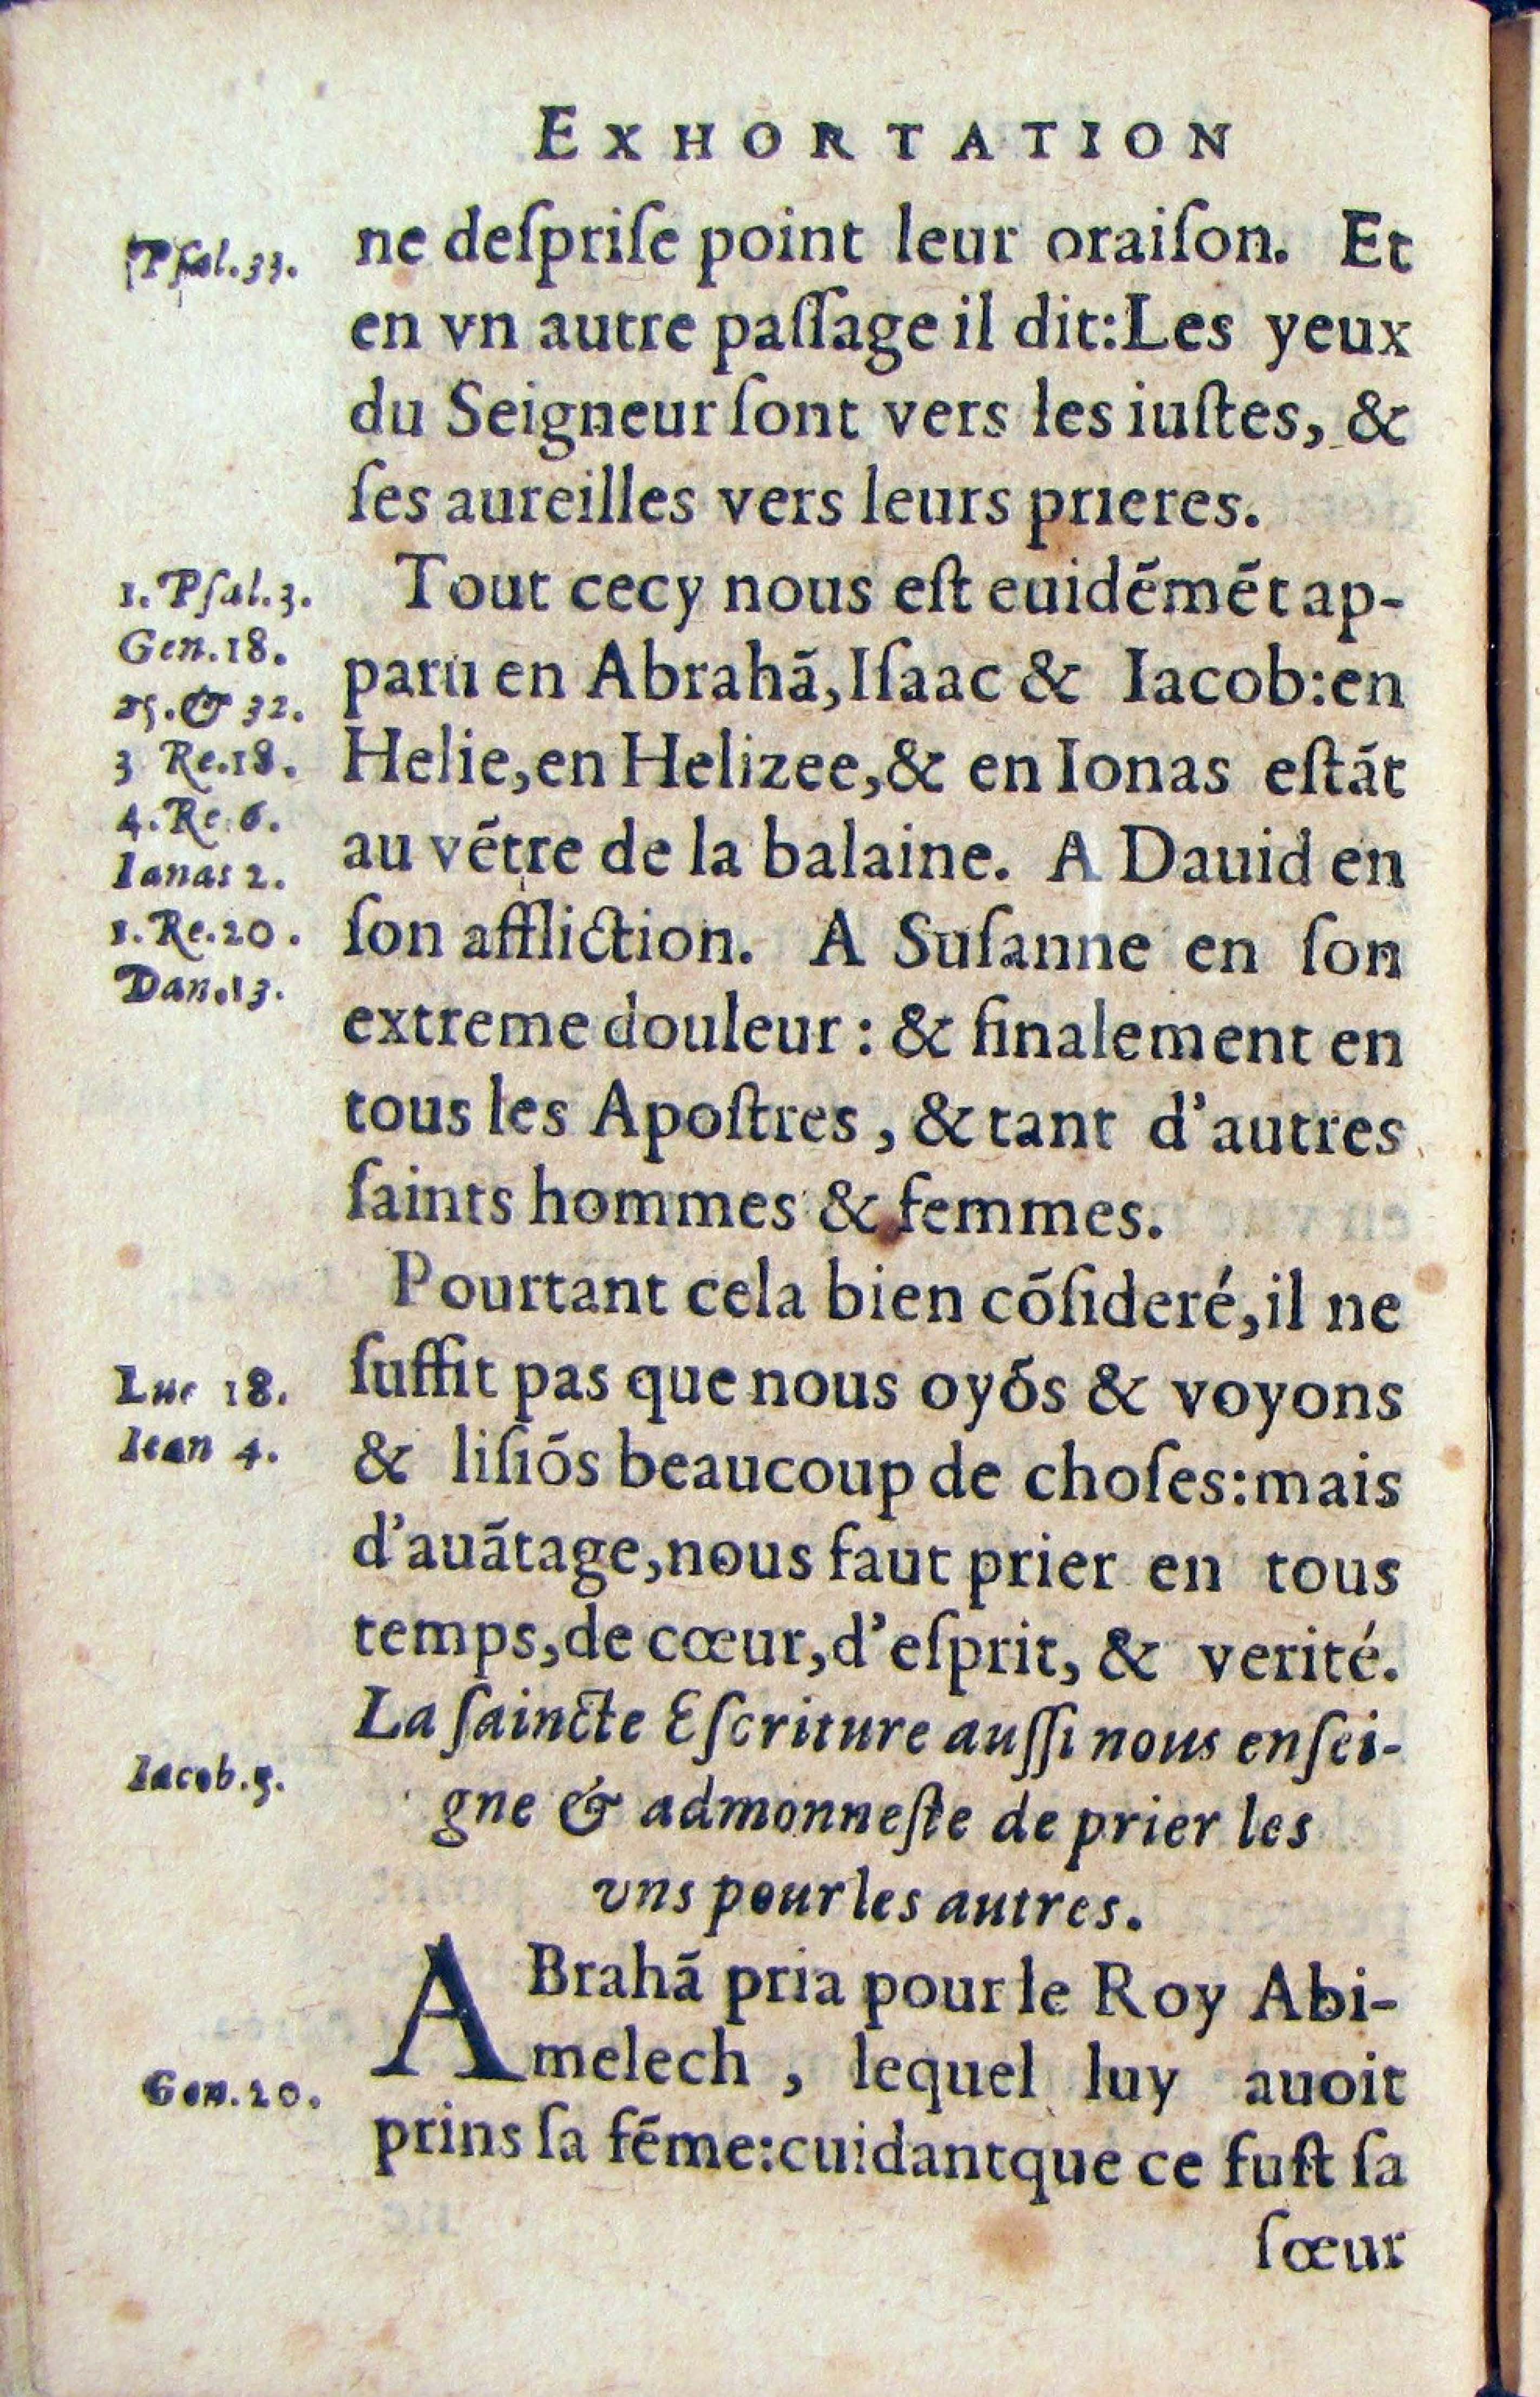 EXHORTATION
Pſal.33.
ne deſpriſe point leur oraiſon. Et
en vn autre paſſage il dit:Les yeux
du Seigneur ſont vers les iuſtes, &
ſes aureilles vers leurs prieres.
1. Pſal.3.
Gen.18.
25.& 32.
3 Re.18.
4.Re.6.
Ianas 2.
1.Re.20.
Dan.13.
Tout cecy nous eſt euidēmēt ap-
paru en Abrahā,Iſaac & Iacob:en
Helie,en Helizee,& en Ionas eſtāt
au vētre de la balaine. A Dauid en
ſon affliction. A Suſanne en ſon
extreme douleur : & finalement en
tous les Apoſtres , & tant d'autres
ſaints hommes & femmes.
Luc 18.
Iean 4.
Pourtant cela bien cōſideré,il ne
ſuffit pas que nous oyōs & voyons
& liſiōs beaucoup de choſes:mais
d'auātage,nous faut prier en tous
temps,de cœur,d'eſprit, & verité.
Iacob.5.
La ſaincte Eſcriture auſſi nous enſei-
gne & admonneſte de prier les
vns pour les autres.
Gen.20.
ABrahā pria pour le Roy Abi-
melech , lequel luy auoit
prins ſa fēme:cuidant que ce fuſt ſa
ſœur